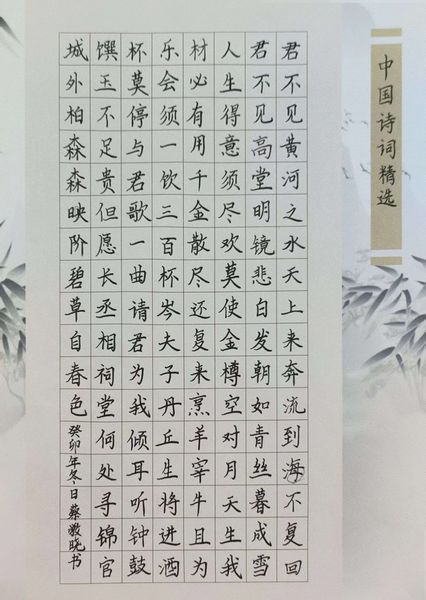 中国诗词精选
君不见黄河之水天上来奔流到海不复回
君不见高堂明镜悲白发朝如青丝暮成雪
人生得意须尽欢莫使金樽空对月天生我
材必有用千金散尽还复来烹羊宰牛且为
乐会须一饮三百杯岑夫子丹丘生将进酒
杯莫停与君歌一曲请君为我倾耳听钟鼓
馔玉不足贵但愿长丞相祠堂何处寻锦官
城外柏森森映阶碧草自春色
癸卯年冬日蔡晓书